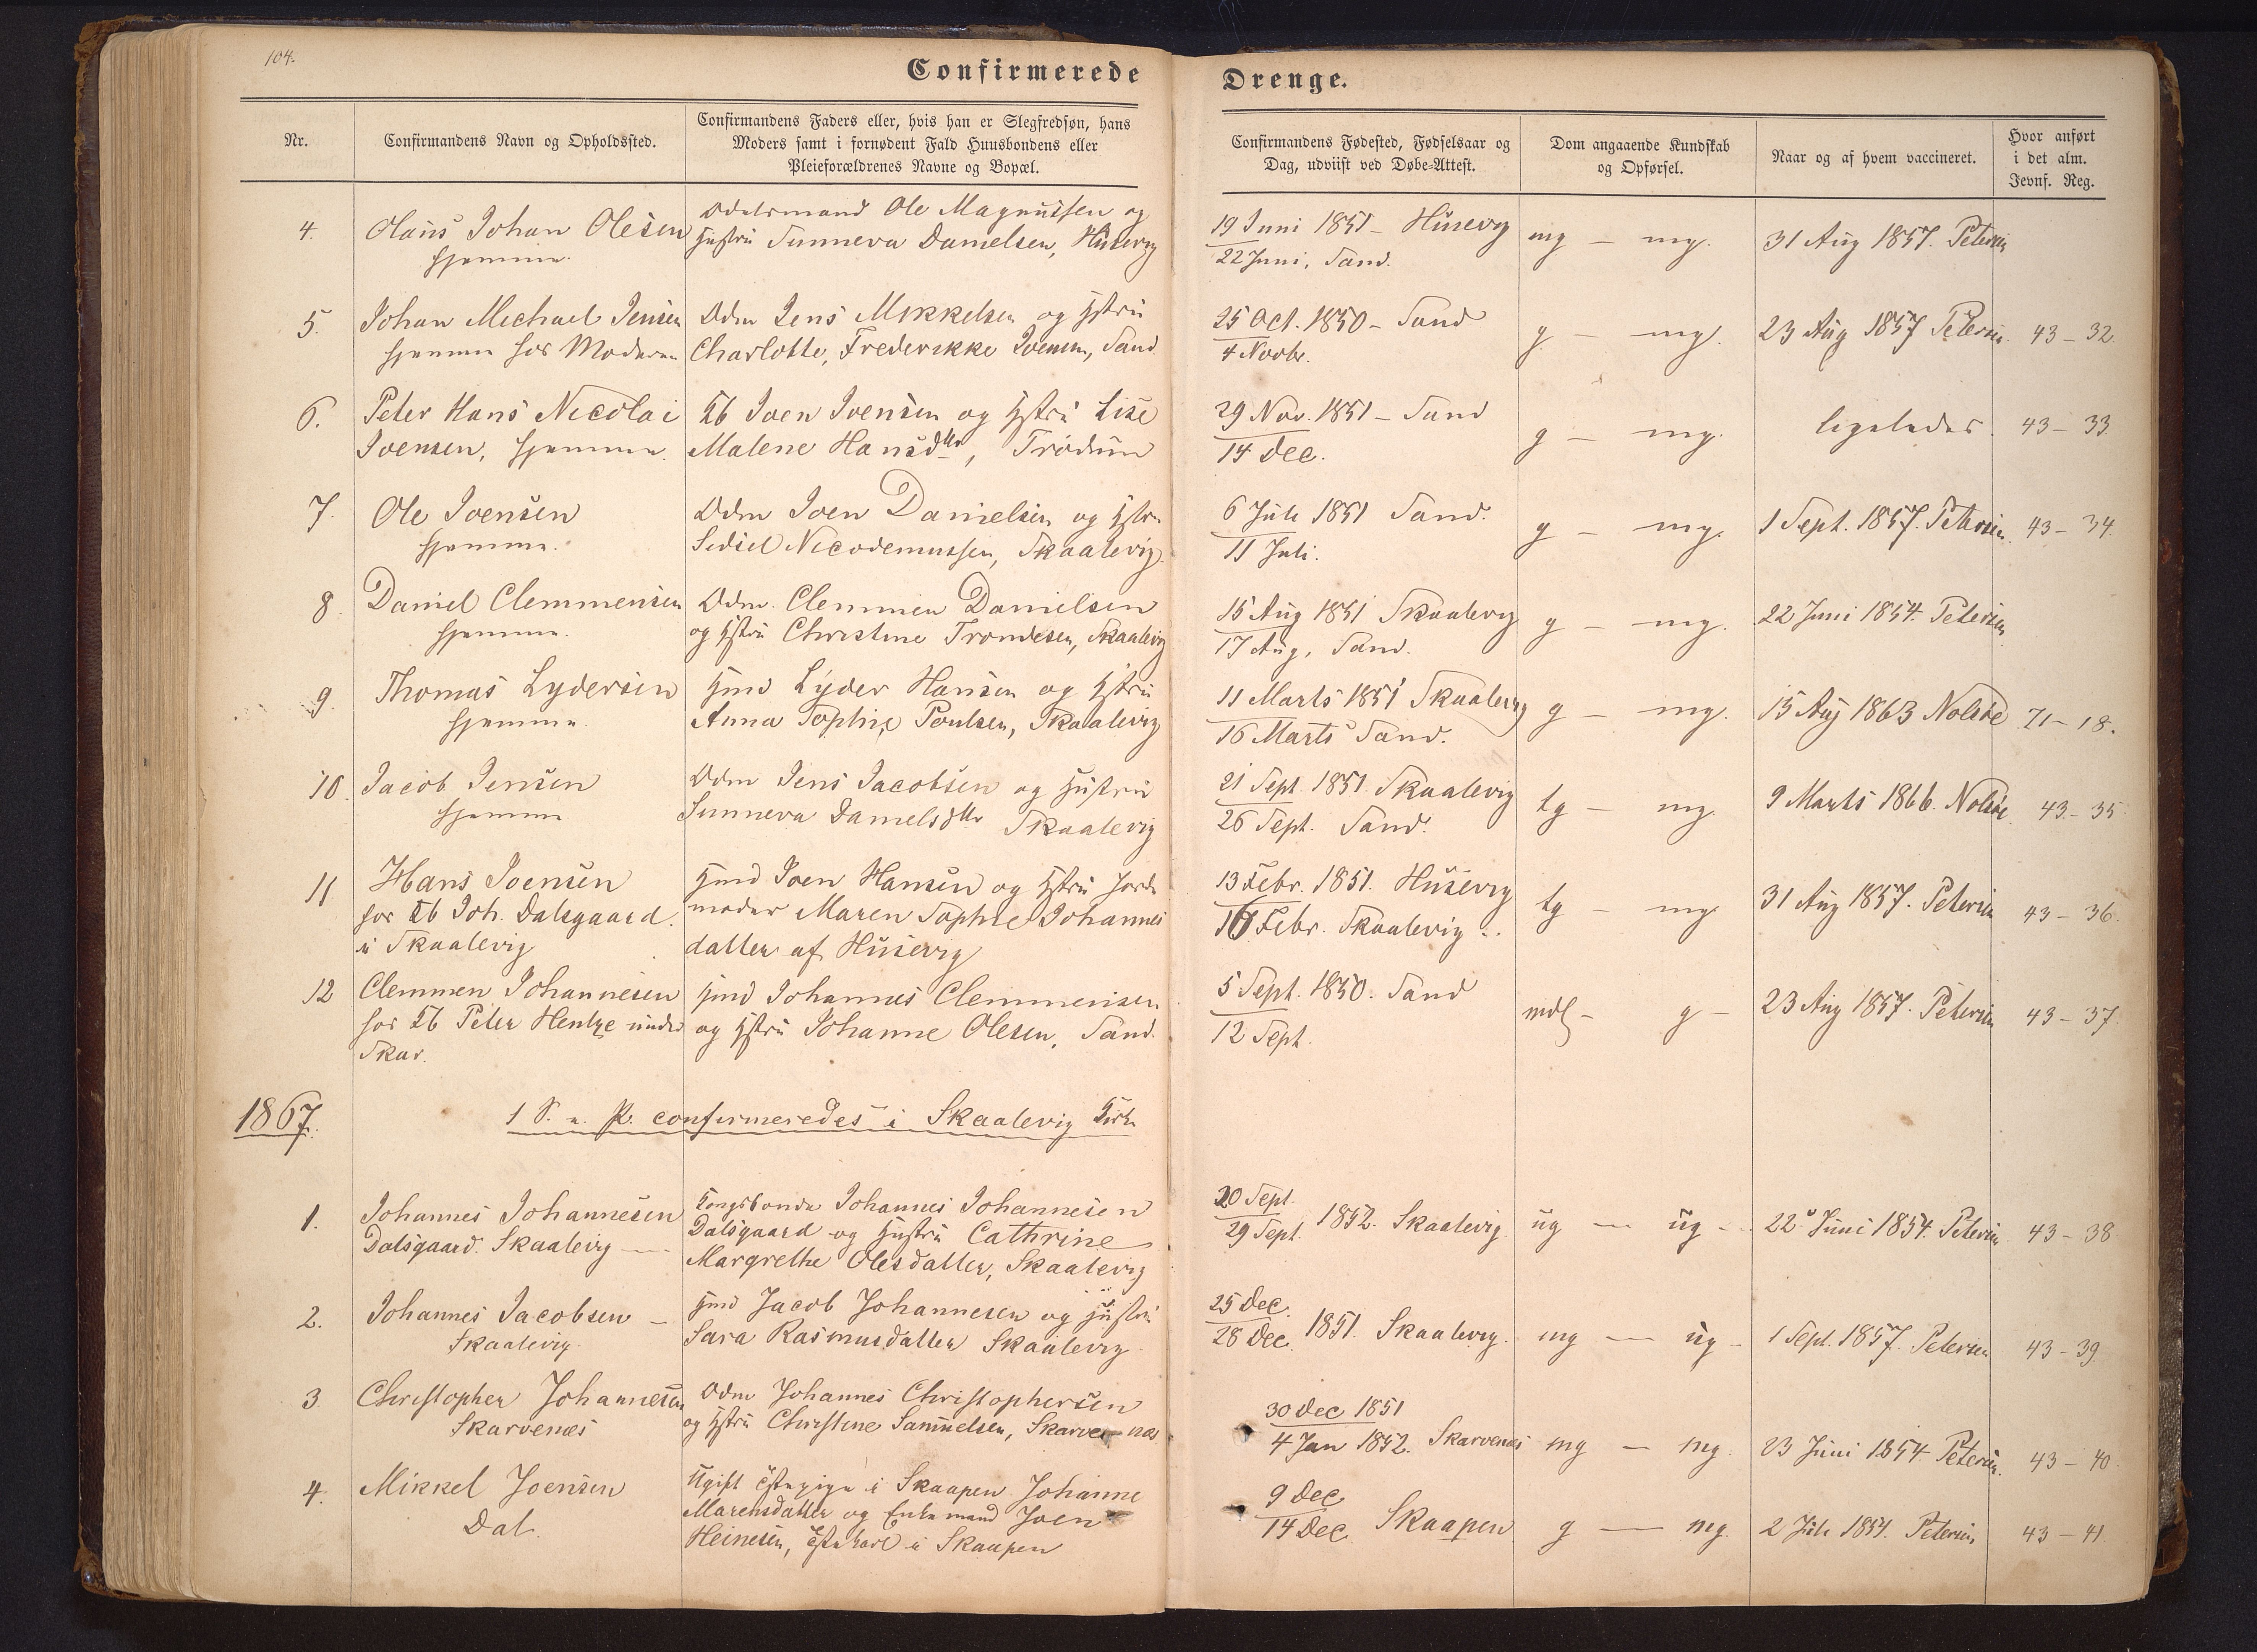 104.
Confirmerede Drenge.
Nr.
Confirmandens Navn og Opholdssted.
Confirmandens Faders eller, hvis han er Slegfredsøn, hans
Moders samt i fornødent Fald Huusbondens eller
Pleieforældrenes Navne og Bopæl.
Confirmandens Fødested, Fødselsaar og
Dag, udviist ved Døbe-Attest.
Dom angaaende Kundskab
og Opførsel.
Naar og af hvem vaccineret.
Hvor anført
i det alm.
Jevnf. Reg.
4. Olaus Johan Olesen
hjemme.
Odelsmand Ole Magnussen og
Hustru Sunneva Danielsen, Husevig
19 Juni 1851 - Husevig
22 Juni, Sand.
mg - mg.
31 Aug 1857. Petersen
5. Johan Michael Jensen
hjemme hos Moderen
Odm Jens Mikkelsen og Hstru
Charlotte Frederikke Joensen, Sand
25 Oct. 1850 - Sand
4 Novbr.
g - mg.
23 Aug 1857 Petersen.
43 - 32.
6. Peter Hans Nicolai
Joensen, hjemme.
Kb Joen Joensen og Hstru Lise
Malene Hansdtr, Trödum
29 Nov. 1851 - Sand
14 Dec.
g - mg.
ligeledes.
43 - 33.
7. Ole Joensen
hjemme.
Odm Joen Danielsen og Hstru
Sidsel Nicodemussen, Skaalevig.
6 Juli 1851 Sand.
11 Juli.
g - mg.
1 Sept. 1857. Petersen.
43 - 34.
8. Daniel Clemmensen
hjemme.
Odm. Clemmen Danielsen
og Hstru Christine Trondesen, Skaalevig
15 Aug 1851 Skaalevig
17 Aug, Sand.
g - mg.
22 Juni 1854. Petersen
9. Thomas Lydersen
hjemme.
Hmd Lyder Hansen og Hstru
Anna Sophie Poulsen, Skaalevig
11 Marts 1851 Skaalevig
16 Marts Sand.
g - mg.
15 Aug 1863 Nolsøe
71 - 18.
10. Jacob Jensen
hjemme
Odm Jens Jacobsen og Hustru
Sunneva Danielsdtr Skaalevig
21 Sept. 1851. Skaalevig
26 Sept. Sand.
tg - mg
9 Marts 1866. Nolsøe
43 - 35
11 Hans Joensen
hos Kb Joh. Dalsgaard.
i Skaalevig
Hmd Joen Hansen og Hstru Jorde
moder Maren Sophie Johannes
datter af Husevig
13 Febr. 1851. Husevig
16 Febr. Skaalevig..
tg - mg
31 Aug 1857. Petersen
43 - 36.
12 Clemmen Johannesen
hos Kb Peter Hentze under
Skar.
Hmd Johannes Clemmensen
og Hstru Johanne Olesen, Sand.
5 Sept. 1850. Sand
12 Sept.
mdl - g -
23 Aug 1857. Petersen
43 - 37.
1867. 1 S. e. P. confirmeredes i Skaalevig Kirke
1. Johannes Johannesen
Dalsgaard. Skaalevig
Kongsbonde Johannes Johannesen
Dalsgaard og Hustru Cathrine
Margrethe Olesdatter, Skaalevig
20 Sept.
29 Sept. 1852. Skaalevig
ug - ug -
22 Juni 1854. Petersen
43 - 38
2. Johannes Jacobsen -
Skaalevig.
Hmd Jacob Johannesen og Hustru
Sara Rasmusdatter Skaalevig
25 Dec.
28 Dec. 1851. Skaalevig.
mg - ug -
1 Sept. 1857. Petersen
43 - 39
3 Christopher Johannesen
Skarvenes
Odm Johannes Christophersen
og Hstru Christine Samuelsen, Skarvenæs
30 Dec 1851
4 Jan 1852. Skarvenes
mg - mg.
23 Juni 1854 Petersen.
43 - 40.
4. Mikkel Joensen
Dal.
Ugift Pige i Skaapen Johanne
Marensdatter og Enkemand Joen
Heinesen, i Skaapen
9 Dec
14 Dec. Skaapen
g - mg.
2 Juli 1854. Petersen
43 - 41.